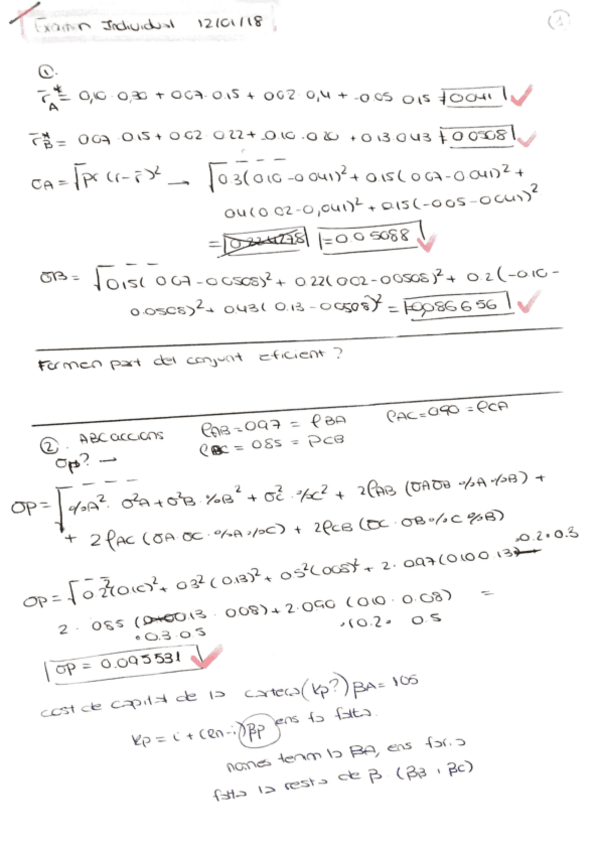 Examen Individual 12/01/18
1
①.
r̄*A = 0,10 · 0,30 + 0,07 · 0,15 + 0,02 · 0,4 + -0,05 · 0,15 = 0,041
r̄*B = 0,07 · 0,15 + 0,02 · 0,22 + -0,10 · 0,20 + 0,13 · 0,43 = 0,0508
σA = √pr (r-r̄)² → √0,3(0,10-0,041)² + 0,15(0,07-0,041)² +
0,4(0,02-0,041)² + 0,15(-0,05-0,041)²
= = 0,05088
σB = √0,15(0,07-0,0508)² + 0,22(0,02-0,0508)² + 0,2(-0,10-
0,0508)² + 0,43(0,13-0,0508)² = 0,086656
Formen part del conjunt eficient?
② ABC accions ρAB = 0,97 = ρBA ρAC = 0,90 = ρCA
σp? → ρBC = 0,85 = ρCB
σp = √%A² · σ²A + σ²B · %B² + σ²C · %C² + 2ρAB (σA σB · %A · %B) +
+ 2ρAC (σA · σC · %A · %C) + 2ρCB (σC · σB · %C %B)
· 0,2 · 0,3
σp = √0,2²(0,10)² + 0,3²(0,13)² + 0,5²(0,08)² + 2 · 0,97(0,10 · 0,13)
2 · 0,85 (0,13 · 0,08) + 2 · 0,90 (0,10 · 0,08) =
· 0,3 · 0,5 · (0,2 · 0,5
σp = 0,095531
cost de capital de la cartera (Kp?) βA = 1,05
Kp = i + (Rm-i) βp ens fa falta.
només tenim la βA, ens faria
falta la resta de β. (βB i βC)